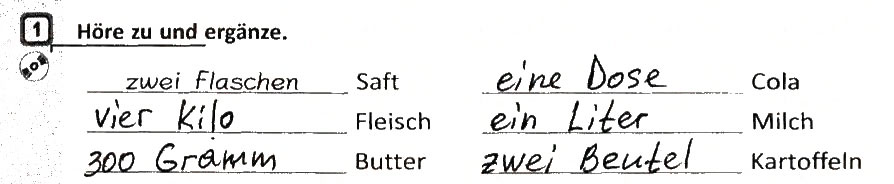 1 Höre zu und ergänze.
zwei Flaschen Saft eine Dose Cola
vier Kilo Fleisch ein Liter Milch
300 Gramm Butter zwei Beutel Kartoffeln